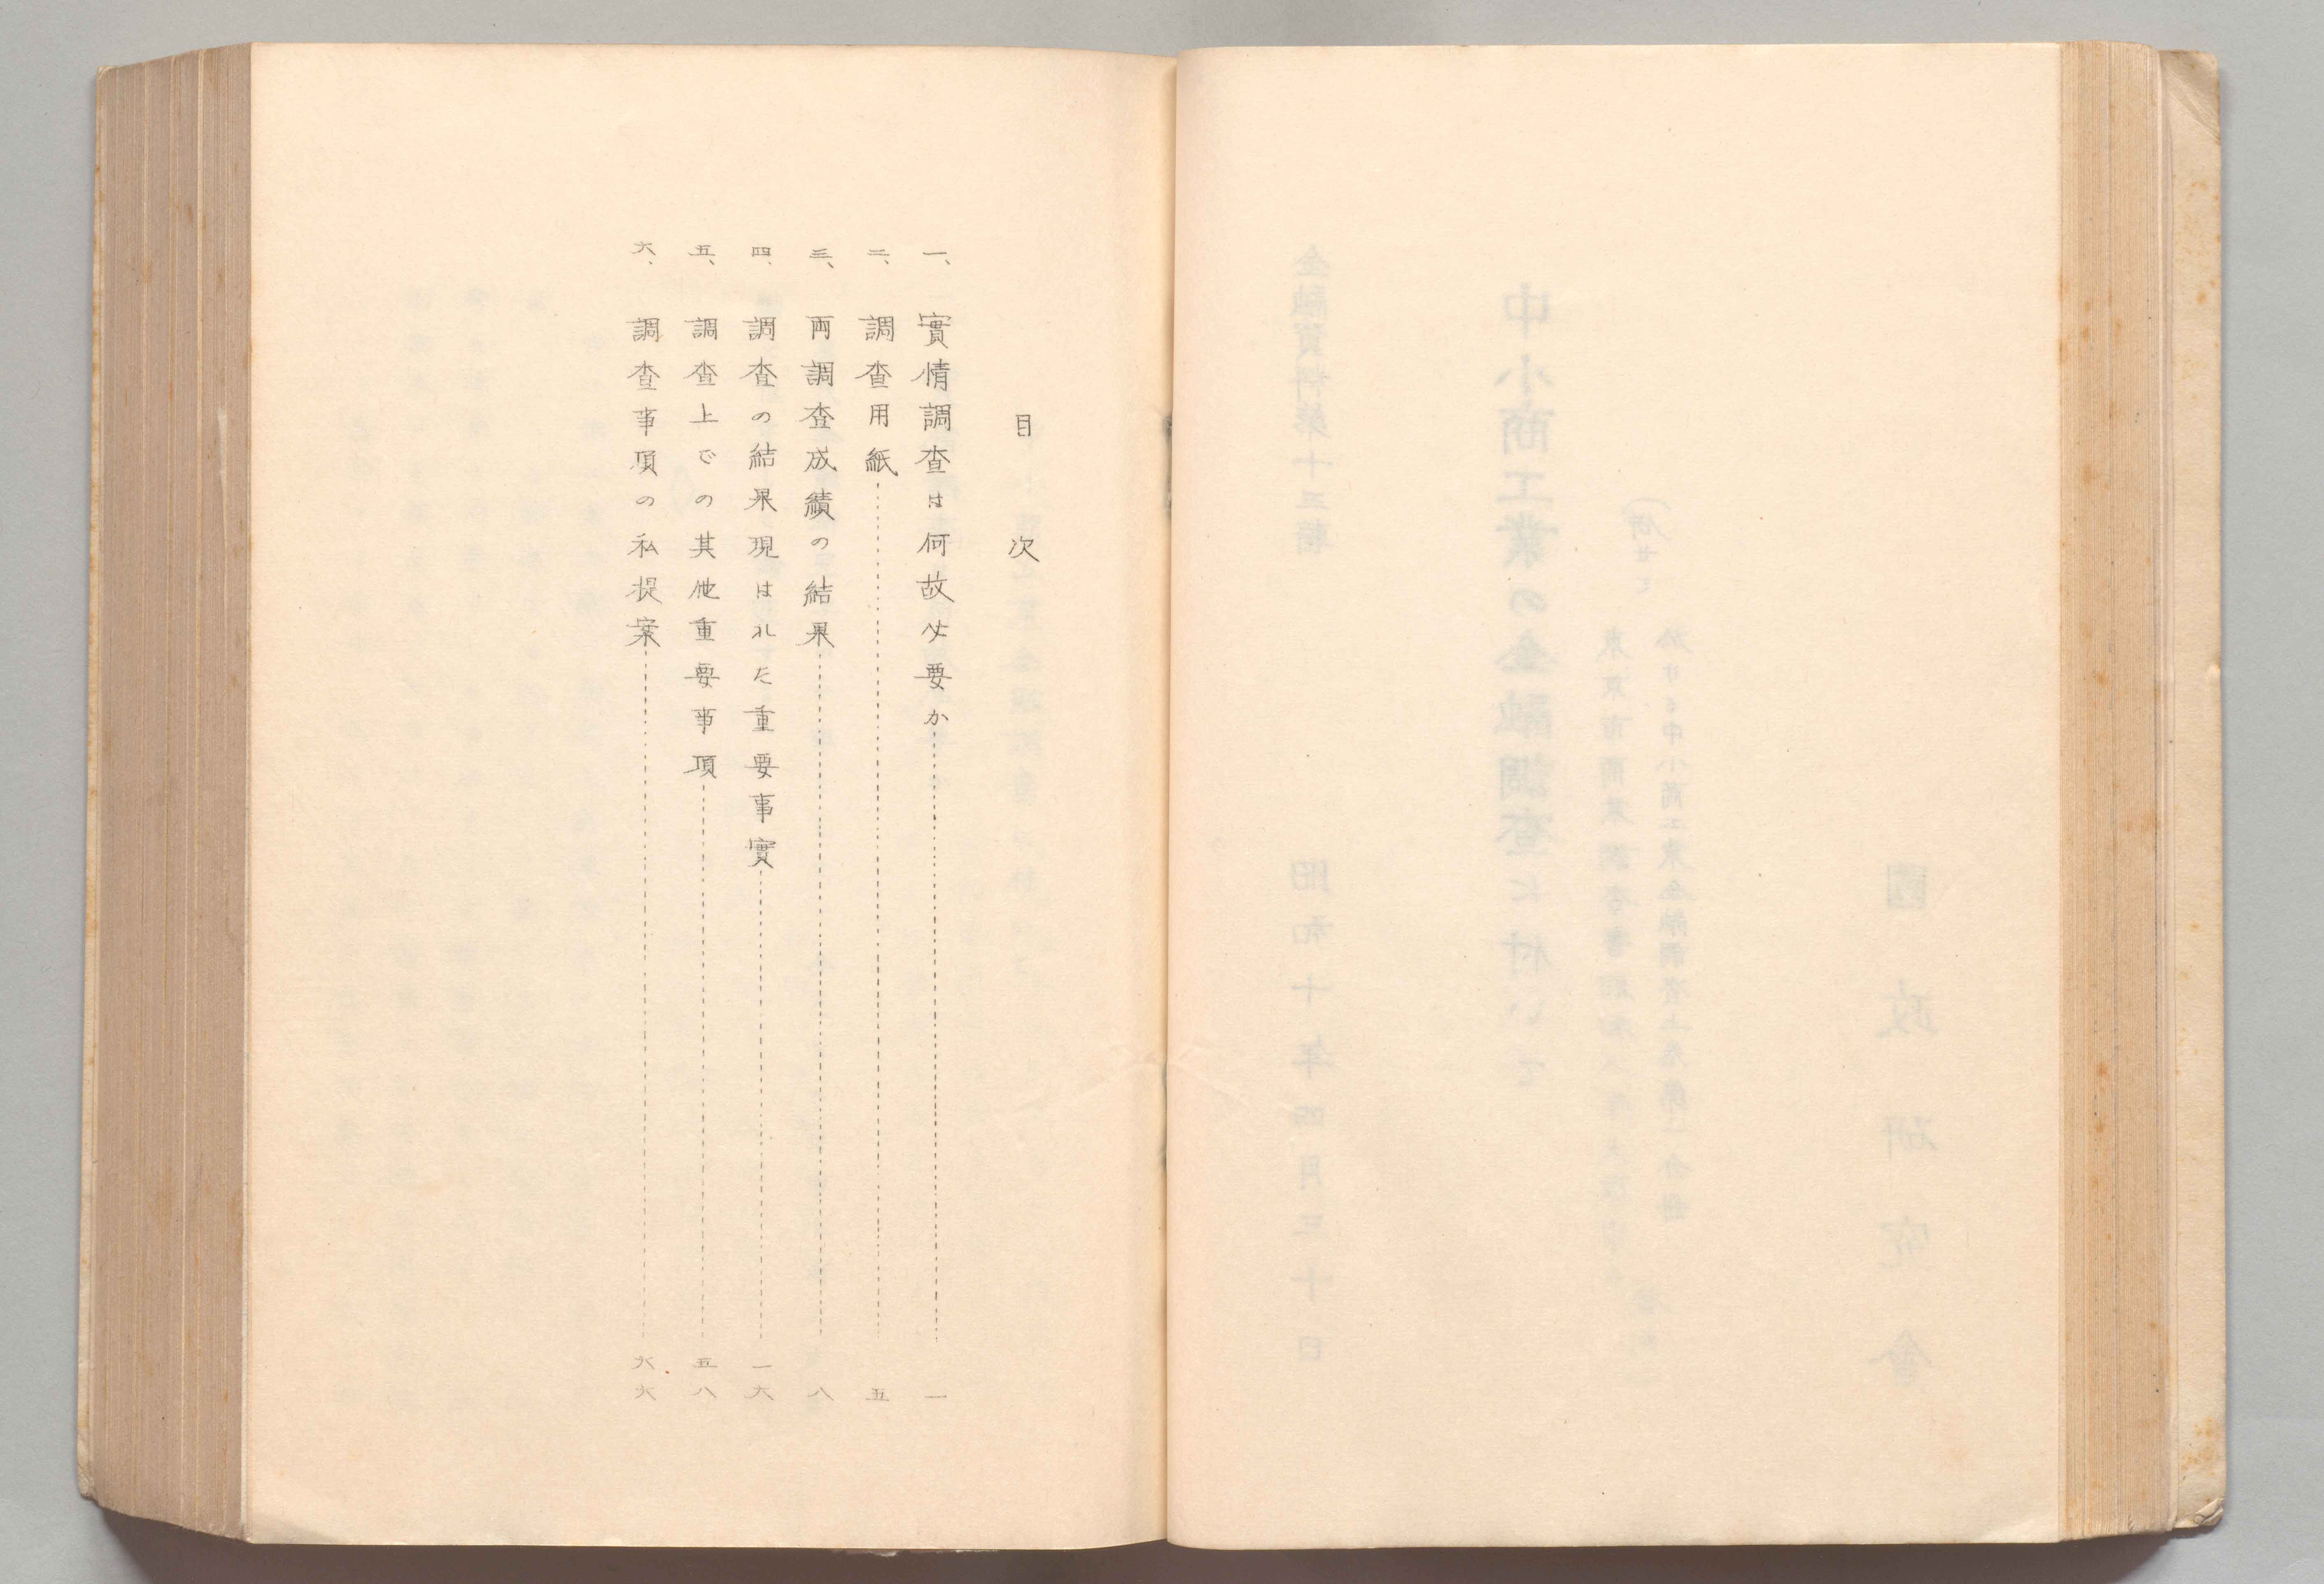 目次
一、實情調査は何故必要か……………一
二、調査用紙……………五
三、両調査成績の結果……………八
四、調査の結果現はれた重要事實……………一六
五、調査上での其他重要事項……………五八
六、調査事項の私提案……………六六